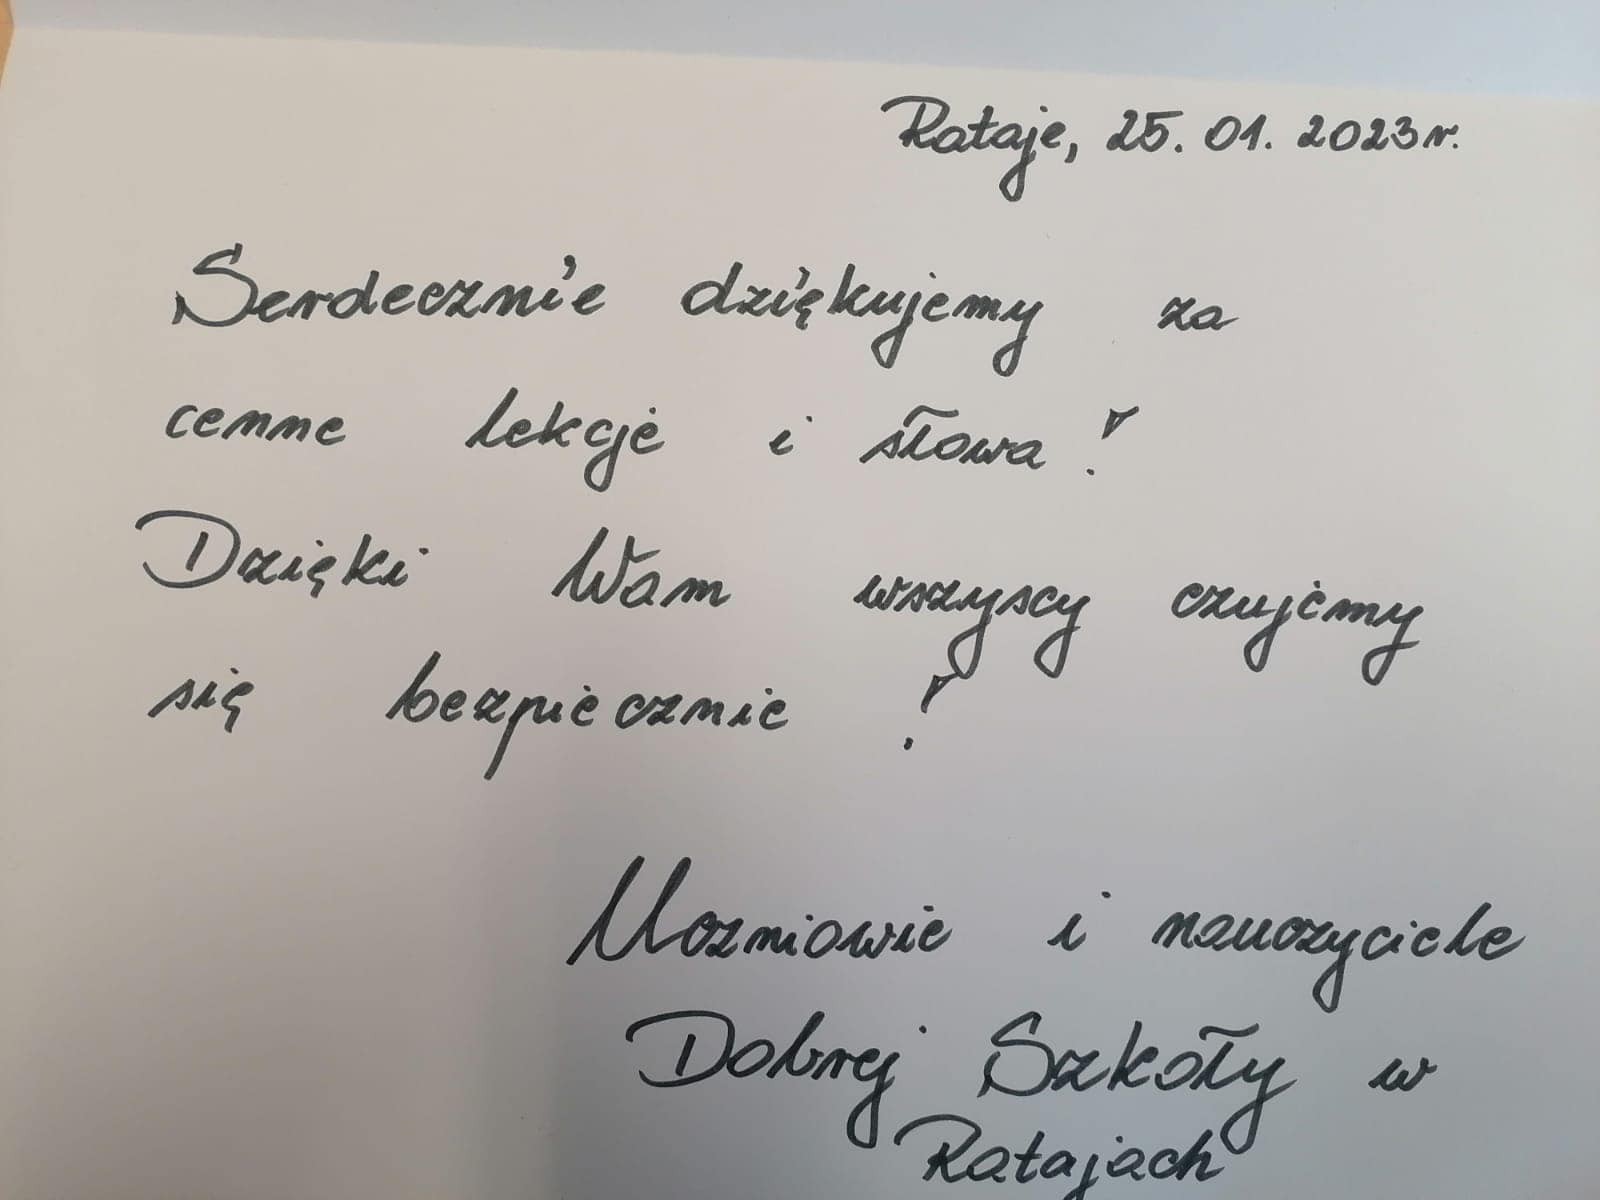 Rataje, 25.01.2023r.
Serdecznie dziękujemy za
cenne lekcje i słowa!
Dzięki Wam wszyscy czujemy
się bezpiecznie!
Uczniowie i nauczyciele
Dobrej Szkoły w
Ratajach